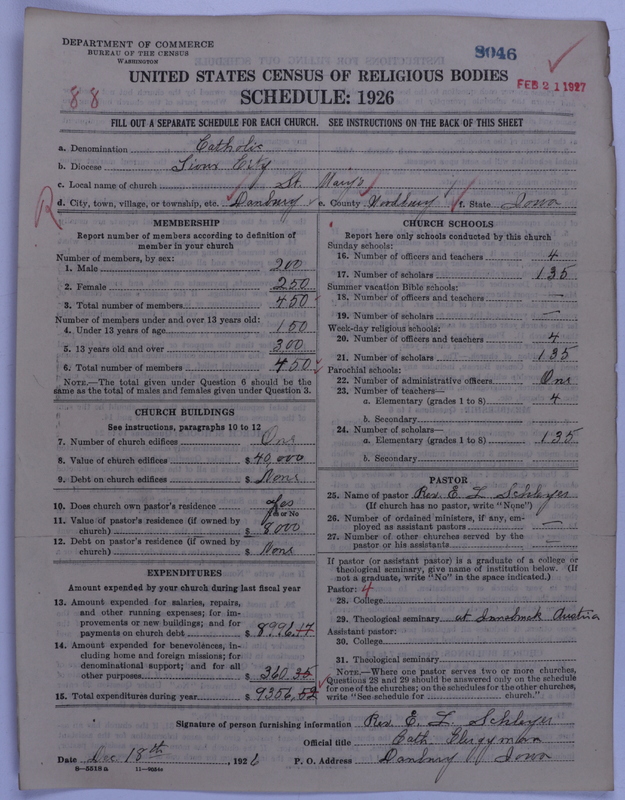 DEPARTMENT OF COMMERCE
BUREAU OF THE CENSUS
WASHINGTON
8046
FEB 21 1927
88
UNITED STATES CENSUS OF RELIGIOUS BODIES
SCHEDULE: 1926
FILL OUT A SEPARATE SCHEDULE FOR EACH CHURCH. SEE INSTRUCTIONS ON THE BACK OF THIS SHEET
a. Denomination Catholic
b. Diocese Sioux City
c. Local name of church St. Mary's
R
d. City, town, village, or township, etc. Danbury e. County Woodbury f. State Iowa
MEMBERSHIP
Report number of members according to definition of
member in your church
Number of members, by sex:
1. Male 200
2. Female 250
3. Total number of members 450
Number of members under and over 13 years old:
4. Under 13 years of age 150
5. 13 years old and over 300
6. Total number of members 450
NOTE.—The total given under Question 6 should be the
same as the total of males and females given under Question 3.
CHURCH BUILDINGS
See instructions, paragraphs 10 to 12
7. Number of church edifices One
8. Value of church edifices $ 40,000
9. Debt on church edifices $ None
10. Does church own pastor's residence Yes
Yes or No
11. Value of pastor's residence (if owned by
church) $ 8000
12. Debt on pastor's residence (if owned by
church) $ None
EXPENDITURES
Amount expended by your church during last fiscal year
13. Amount expended for salaries, repairs,
and other running expenses; for im-
provements or new buildings; and for
payments on church debt $ 8996.17
14. Amount expended for benevolences, in-
cluding home and foreign missions; for
denominational support; and for all
other purposes $ 360.35
15. Total expenditures during year $ 9356.52
CHURCH SCHOOLS
Report here only schools conducted by this church
Sunday schools:
16. Number of officers and teachers 4
17. Number of scholars 135
Summer vacation Bible schools:
18. Number of officers and teachers —
19. Number of scholars —
Week-day religious schools:
20. Number of officers and teachers 4
21. Number of scholars 135
Parochial schools:
22. Number of administrative officers One
23. Number of teachers—
a. Elementary (grades 1 to 8) 4
b. Secondary
24. Number of scholars—
a. Elementary (grades 1 to 8) 135
b. Secondary
PASTOR
25. Name of pastor Rev. E. L. Schleyer
(If church has no pastor, write "None")
26. Number of ordained ministers, if any, em-
ployed as assistant pastors —
27. Number of other churches served by the
pastor or his assistants —
If pastor (or assistant pastor) is a graduate of a college or
theological seminary, give name of institution below. (If
not a graduate, write "No" in the space indicated.)
Pastor: 4
28. College
29. Theological seminary at Innsbruck Austria
Assistant pastor:
30. College
31. Theological seminary
NOTE.—Where one pastor serves two or more churches,
Questions 28 and 29 should be answered only on the schedule
for one of the churches; on the schedules for the other churches,
write "See schedule for church."
Signature of person furnishing information Rev. E. L. Schleyer
Official title Cath. Clergyman
Date Dec 18th, 1926 P. O. Address Danbury Iowa
8—5518 a 11—9034